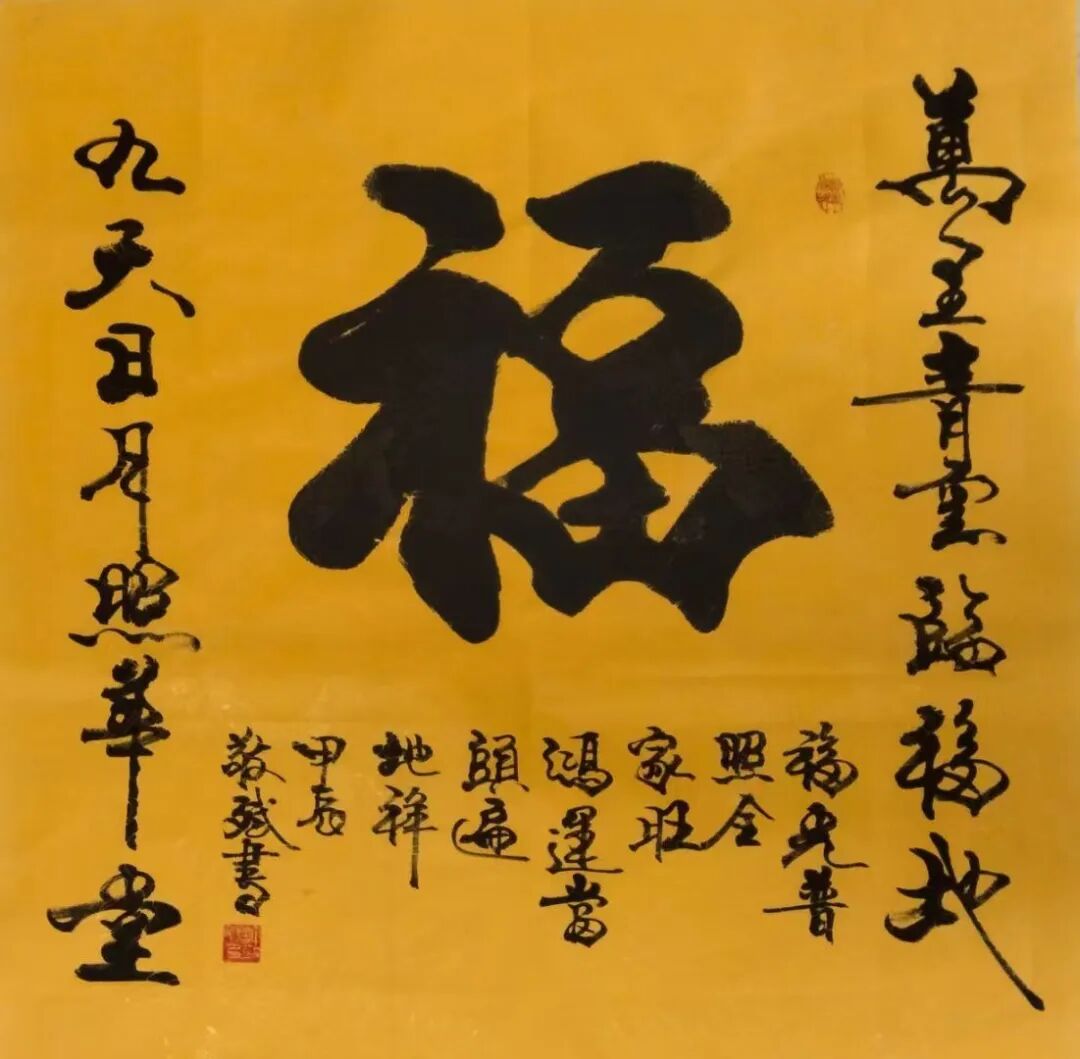 萬青臨福地
福
九天日月照華堂
福光普
照全
家旺
鴻運當
頭遍
地祥
甲辰
書